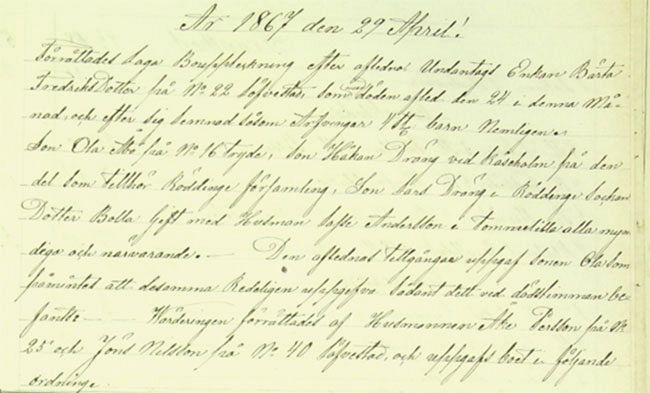 År 1867 den 29 April!
Förrättades Laga Bouppteckning efter afledna Undantags Enkan Bärta
FredriksDotter på No 22 Löfvestad, som med döden afled den 24 i denna Må-
nad, och efter sig lemnad såsom Arfvingar 4 st barn Nemligen.
Son Ola Åke på No 16 tryde, Son Håkan Dräng ved Kåseholm på den
del som tillhör Röddinge församling, Son Lars Dräng i Röddenge Sockan
Dotter Bolla Gift med Husman Lasse Andersson i Tommelilla alla myn
diga och narvarande. — Den aflednas tillgångar uppgaf sonen Ola som
påmintes att desamma Redeligen uppgifva sådant dett ved dödstimman be-
fants — Wärderingen förrättades af Husmannen Åke Persson på No
25 och Jöns Nilsson på No 40 Löfvestad, och uppgafs boet i följande
ordning.